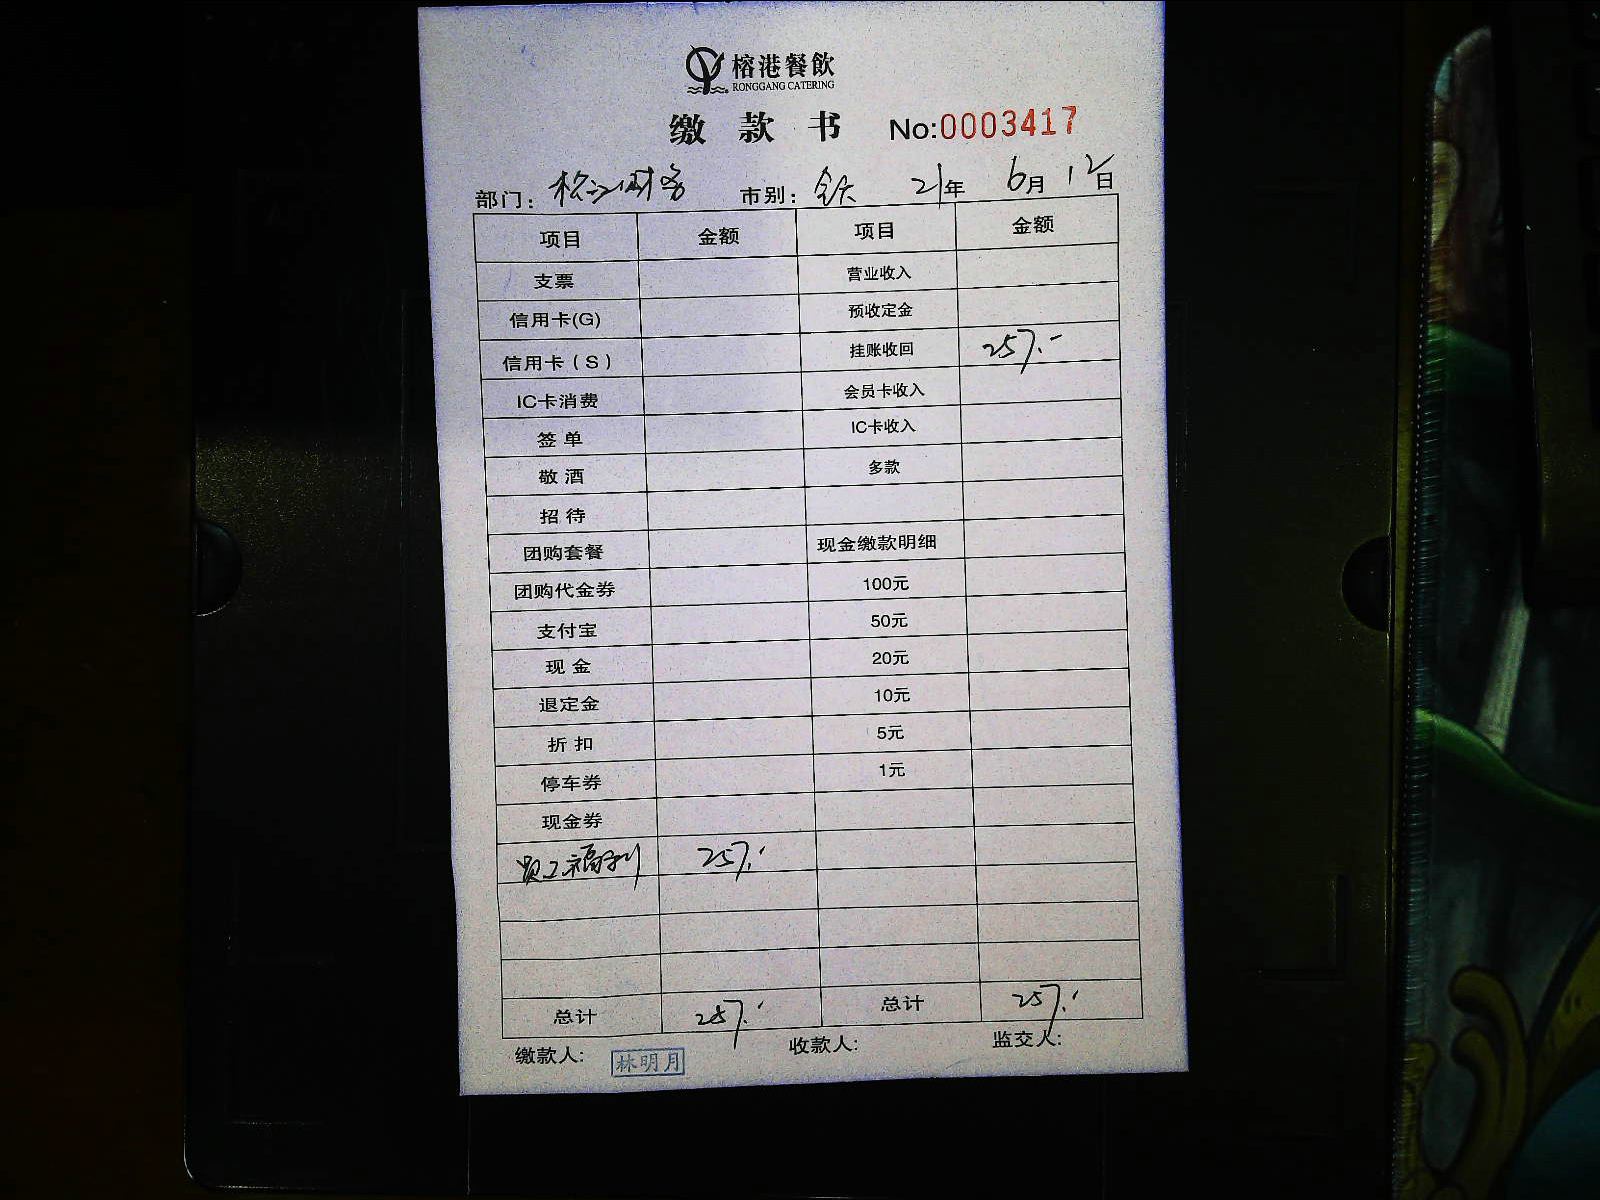 榕港餐飲
RONGGANG CATERING
缴款书 No:0003417
部门: 松江财务 市别: 全天 21年 6月 12日
项目 金额 项目 金额
支票 营业收入
信用卡(G) 预收定金
信用卡(S) 挂账收回 257.-
IC卡消费 会员卡收入
签单 IC卡收入
敬酒 多款
招待
团购套餐 现金缴款明细
团购代金券 100元
支付宝 50元
现金 20元
退定金 10元
折扣 5元
停车券 1元
现金券
员工福利 257.-
总计 257.- 总计 257.-
缴款人: 林明月 收款人: 监交人: